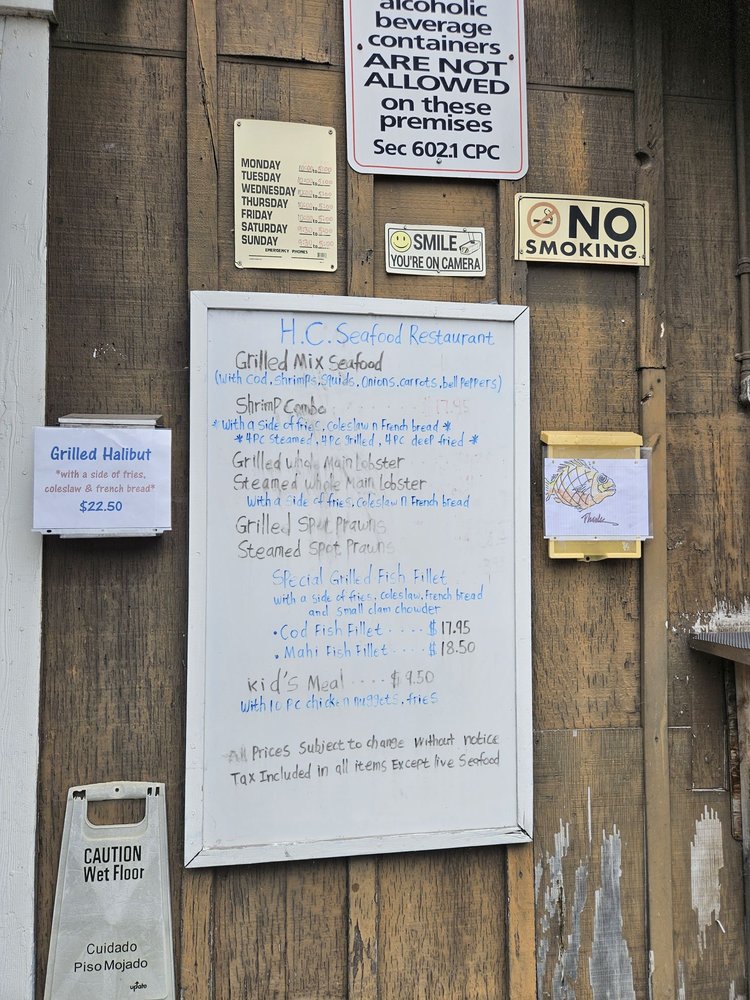 alcoholic
beverage
containers
ARE NOT
ALLOWED
on these
premises
Sec 602.1 CPC
MONDAY 10:00 to 5:00
TUESDAY 10:00 to 5:00
WEDNESDAY 10:00 to 5:00
THURSDAY 10:00 to 5:00
FRIDAY 10:00 to 5:00
SATURDAY 9:30 to 5:00
SUNDAY 9:30 to 5:00
EMERGENCY PHONES
SMILE
YOU'RE ON CAMERA
NO
SMOKING
H.C. Seafood Restaurant
Grilled Mix Seafood
(with cod, shrimps, squids, onions, carrots, bell peppers)
Shrimp Combo 17.95
*with a side of fries, coleslaw n French bread*
*4PC steamed, 4PC grilled, 4PC deep fried*
Grilled whole Main Lobster
Steamed whole Main Lobster
with a side of fries, coleslaw n French bread
Grilled Spot Prawns
Steamed Spot Prawns
Special Grilled Fish Fillet
with a side of fries, coleslaw, French bread
and small clam chowder
• Cod Fish Fillet .... $ 17.95
• Mahi Fish Fillet .... $ 18.50
Kid's Meal .... $ 9.50
with 10 PC chicken nuggets, fries
All Prices Subject to change without notice
Tax Included in all items Except live Seafood
Grilled Halibut
*with a side of fries,
coleslaw & french bread*
$22.50
CAUTION
Wet Floor
Cuidado
Piso Mojado